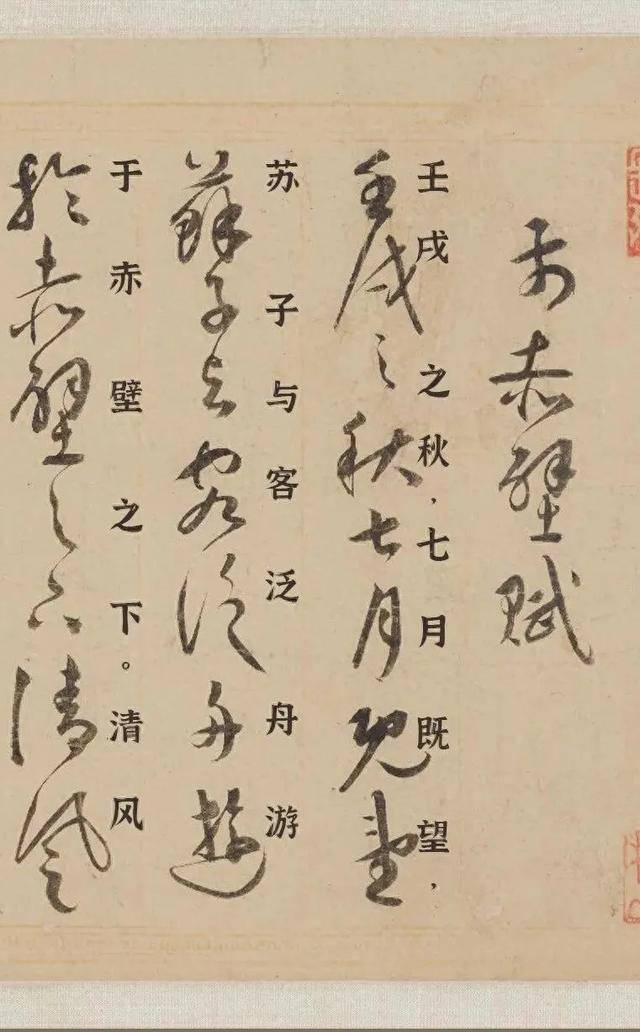 前赤壁赋
壬戌之秋,七月既望,
壬戌之秋七月既望
苏子与客泛舟游
蘇子与客泛舟遊
于赤壁之下。清风
於赤壁之下清風